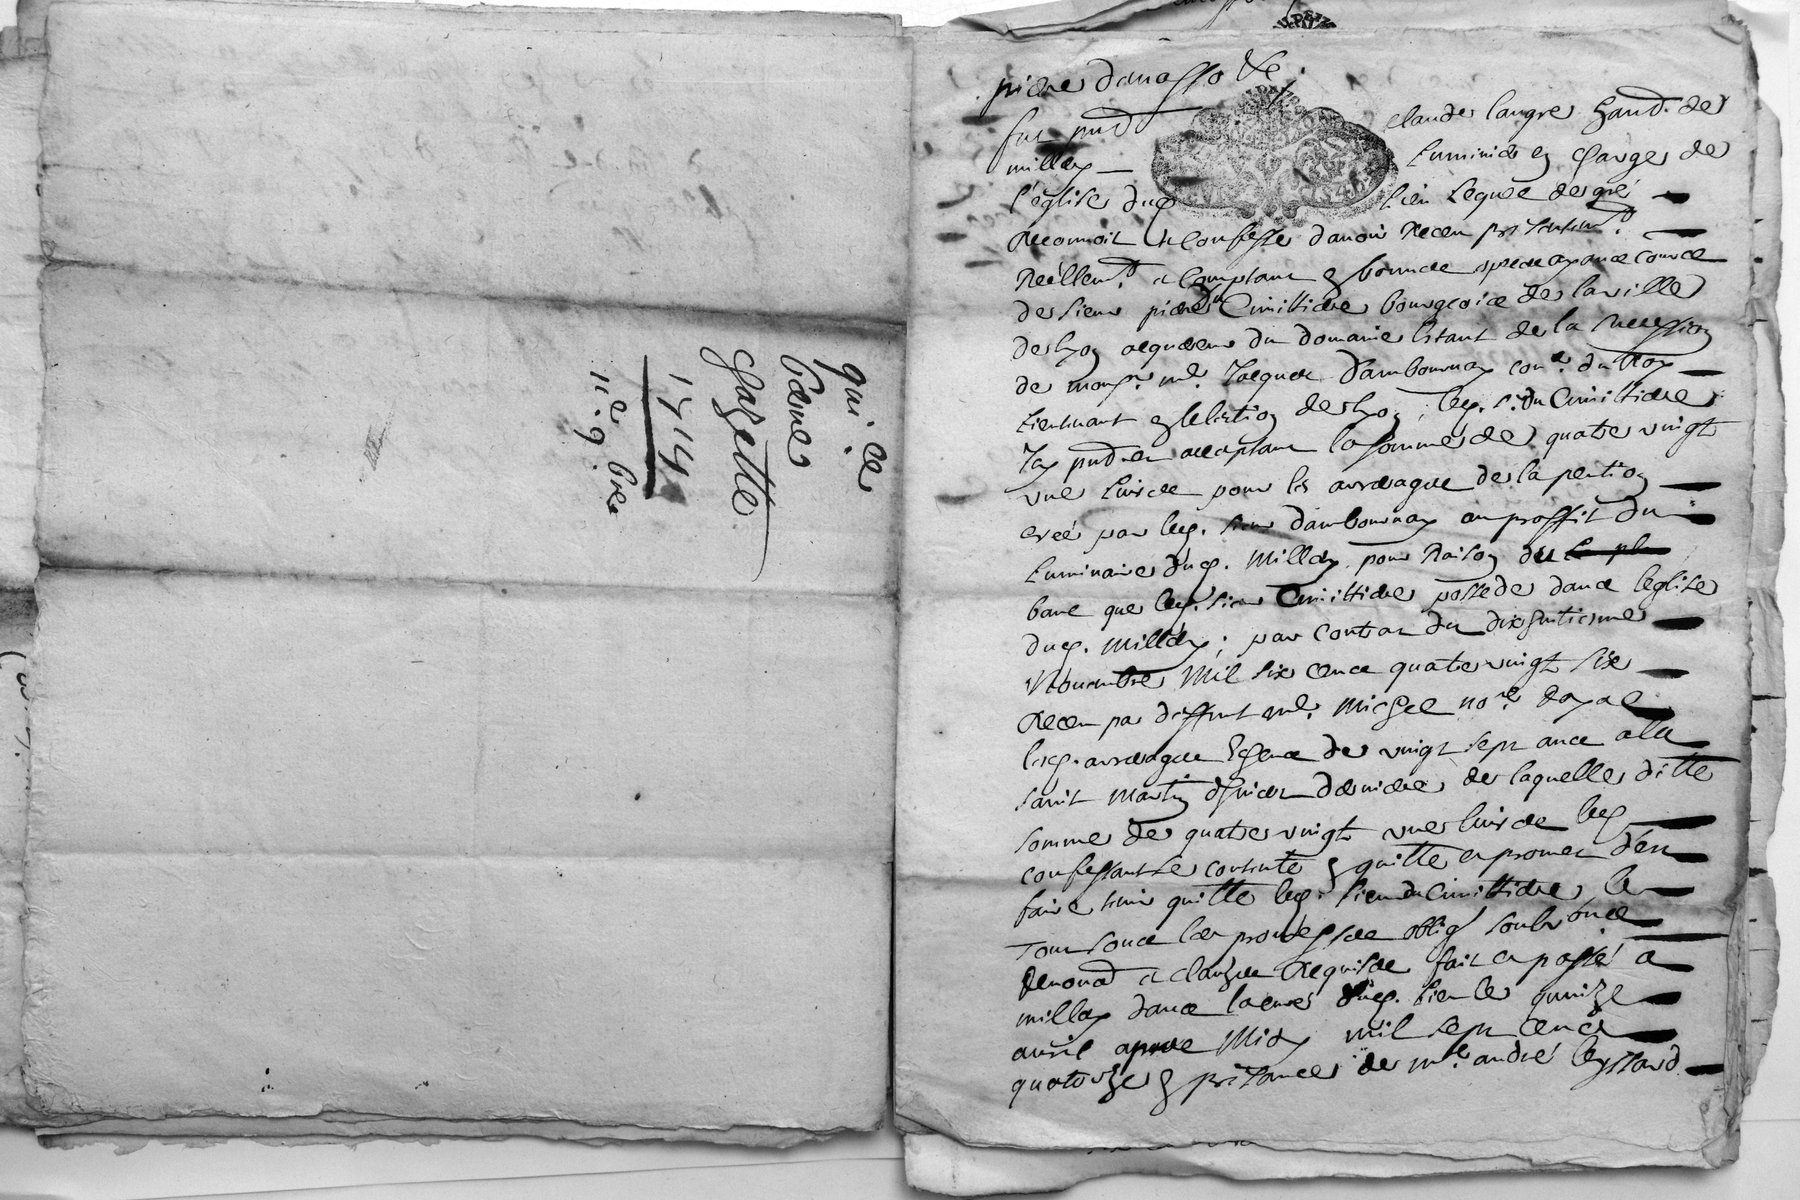 quit.ce
bérnes
Chazette
1714
11.e 9.bre
pierre
fut pnt claude laugre hand. de
millery luminier en charge de
l'église dud lieu Lequel de gré
Reconnoit et Confesse d'auoir Receu presentem.t
Réellem.t et Comptant en bonnes especes ayant cours
de sieur pierre Cimittiere bourgeois de la ville
de lyon acquereur du domaine Estant de la succession
de mons.r m.e Jacques Dambournay con.er du Roy
Lieutenant en lelection de lyon, led. s. du Cimittiere
Icy pnt et acceptant la somme de quatre vingt
vne Liures pour les arrerages de la pention
creé par led. sieur dambournay au proffit du
Luminaire dud. Millery pour Raison du
banc que led. sieur Cimittiere possede dans leglise
dud. millery; par Contrat du dixhuitiesme
Nouembre Mil six cens quatre vingt six
Receu par deffunt m.e Michel no.re Royal
lesd. arrerages Echeus de vingt sept ans a la
saint martin d'hiuer derniere de laquelle ditte
somme de quatre vingt vne liures led
confessant se contente en quitte et promet d'en
faire tenir quitte led. sieur du Cimittiere, le
Tout sous les promesses oblig soub.ons
Renond et clauses Requises fait et passé a
millery dans la cure dud. lieu le quinze
auril apres Midy mil sept cens
quatorze en presence de m.e andré leyssard